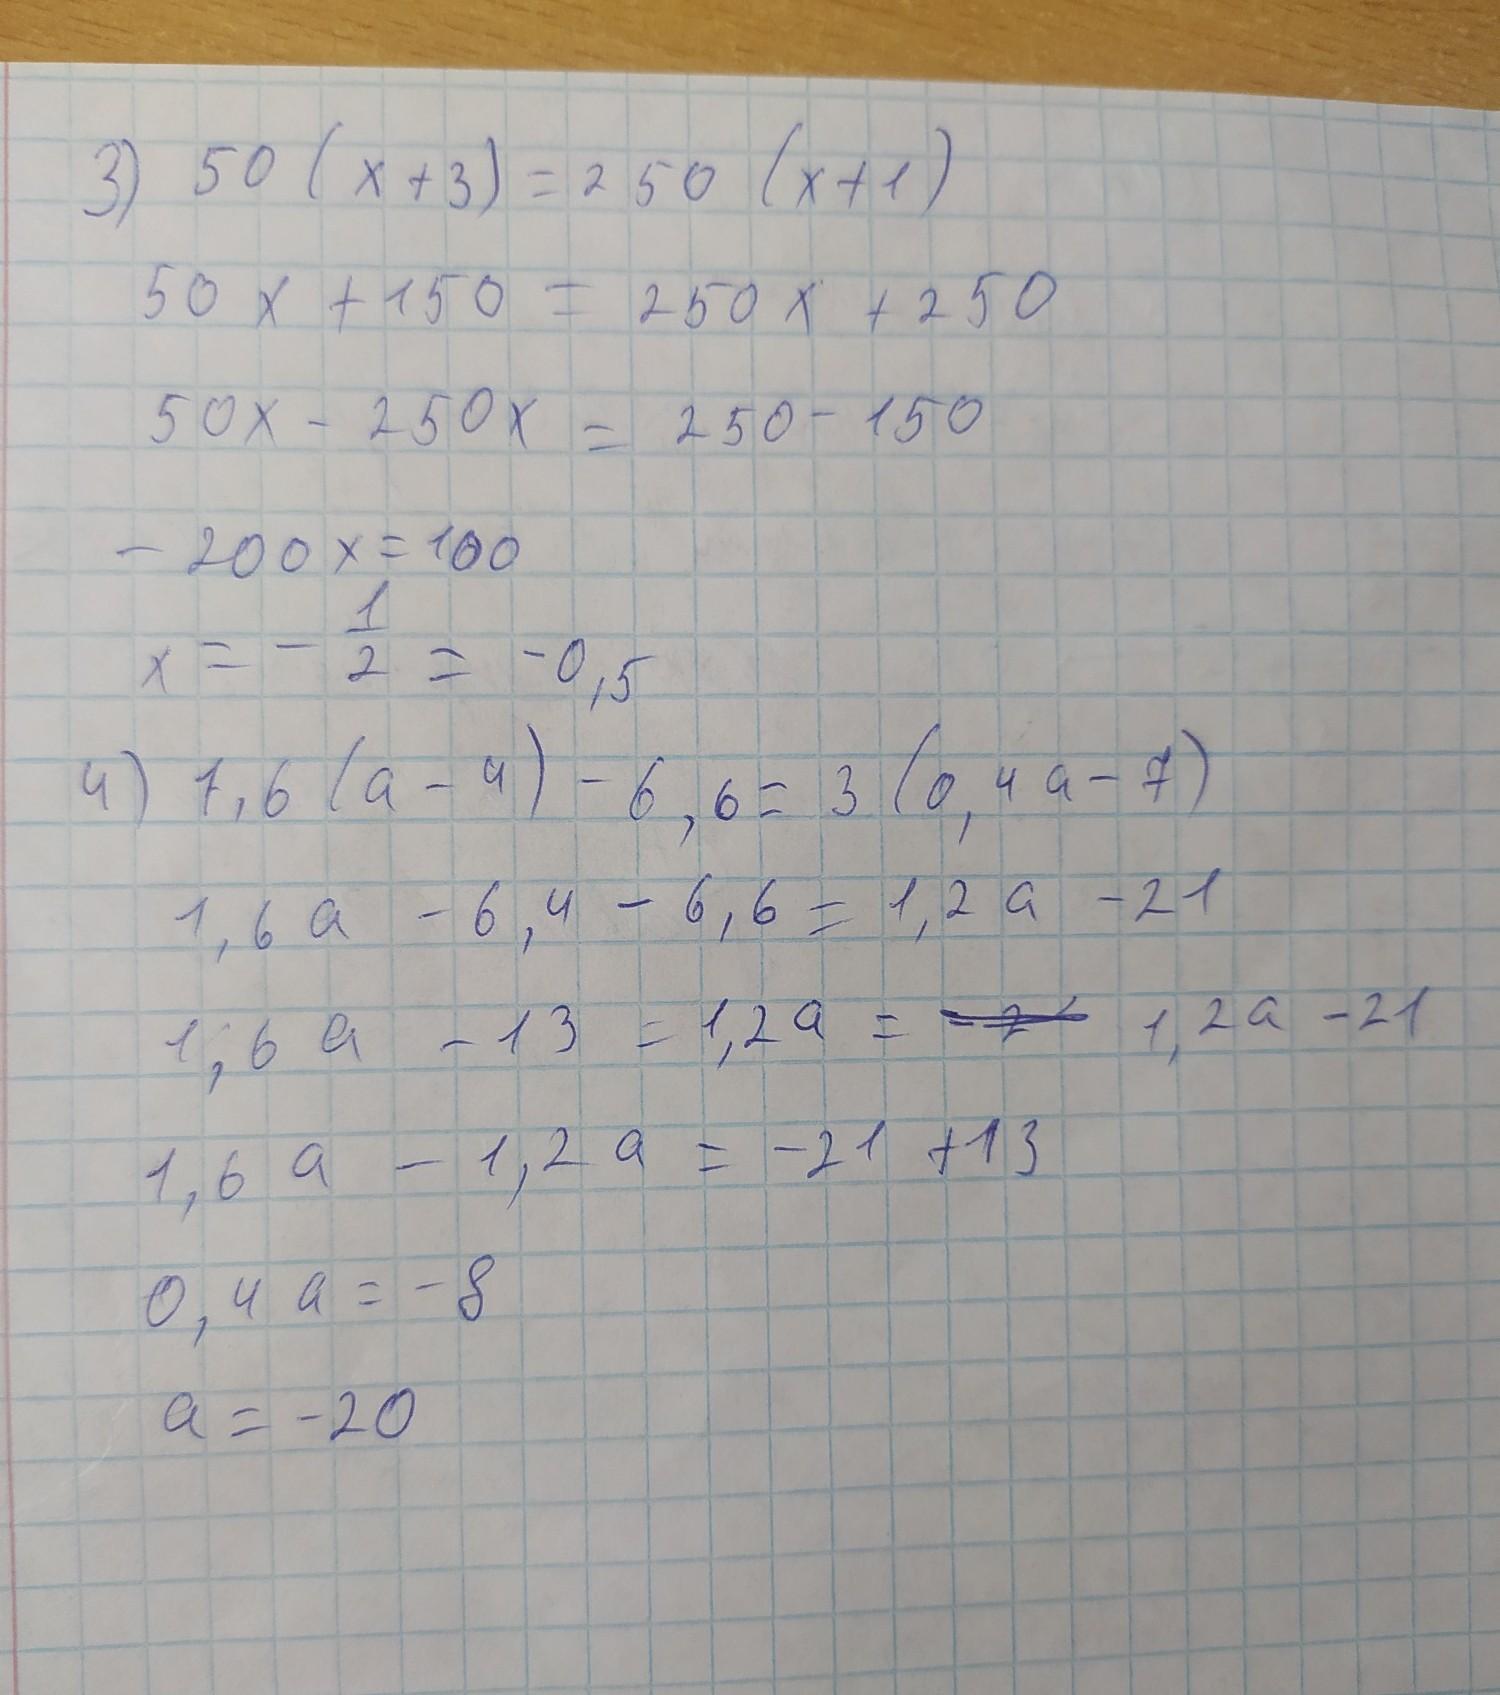 3) 50 (x+3) = 250 (x+1)
50x + 150 = 250x + 250
50x - 250x = 250 - 150
- 200x = 100
x = - 1/2 = -0,5
4) 1,6 (a - 4) - 6,6 = 3 (0,4a - 7)
1,6a - 6,4 - 6,6 = 1,2a - 21
1,6a - 13 = 1,2a = 1,2a - 21
1,6a - 1,2a = -21 + 13
0,4a = -8
a = -20